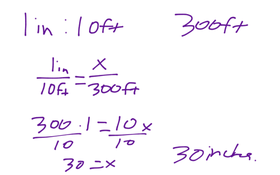 1in : 10ft 300ft
1in/10ft = x/300ft
300 · 1/10 = 10x/10
30 = x 30 inches.